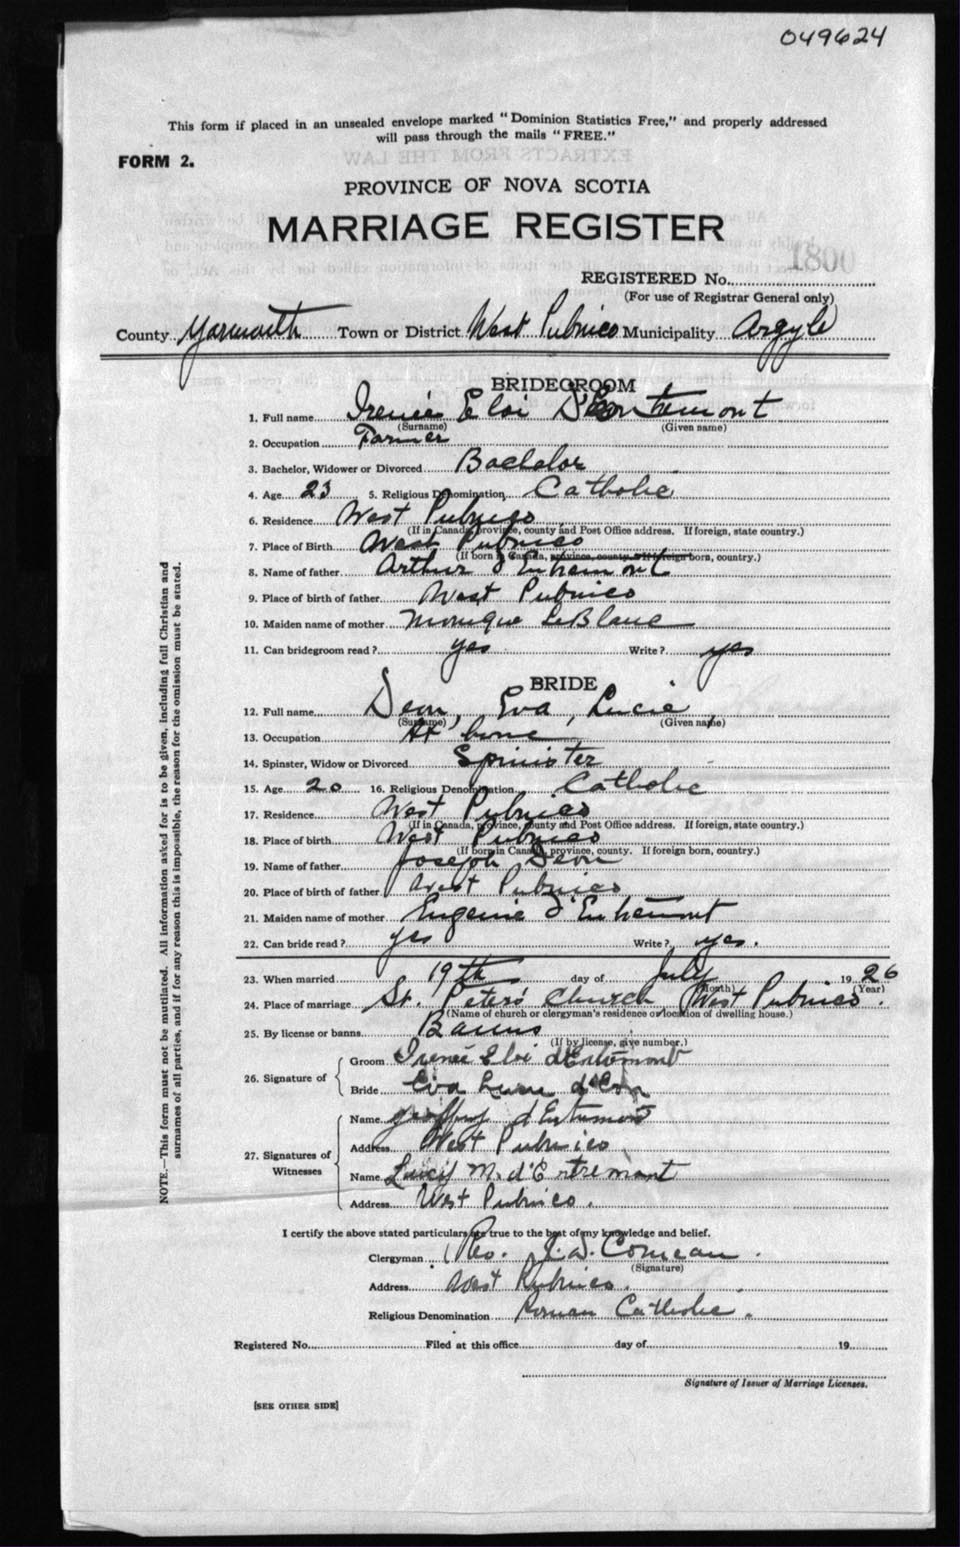 049624
This form if placed in an unsealed envelope marked "Dominion Statistics Free," and properly addressed
will pass through the mails "FREE."
EXTRACTS FROM THE LAW
FORM 2.
PROVINCE OF NOVA SCOTIA
MARRIAGE REGISTER
1800
REGISTERED No.
(For use of Registrar General only)
County Yarmouth Town or District West Pubnico Municipality Argyle
BRIDEGROOM
1. Full name Irenée Eloi D'Entremont
(Surname) (Given name)
2. Occupation Farmer
3. Bachelor, Widower or Divorced Bachelor
4. Age 23 5. Religious Denomination Catholic
6. Residence West Pubnico
(If in Canada, province, county and Post Office address. If foreign, state country.)
7. Place of Birth West Pubnico
(If born in Canada, province, county. If foreign born, country.)
8. Name of father Arthur d'Entremont
9. Place of birth of father West Pubnico
10. Maiden name of mother Monique LeBlanc
11. Can bridegroom read? yes Write? yes
BRIDE
12. Full name Deon, Eva, Lucie,
(Surname) (Given name)
13. Occupation At home
14. Spinster, Widow or Divorced Spinister
15. Age 20 16. Religious Denomination Catholic
17. Residence West Pubnico
(If in Canada, province, county and Post Office address. If foreign, state country.)
18. Place of birth West Pubnico
(If born in Canada, province, county. If foreign born, country.)
19. Name of father Joseph Deon
20. Place of birth of father West Pubnico
21. Maiden name of mother Eugenie d'Entremont
22. Can bride read? yes Write? yes.
23. When married 19th day of July 1926
(Month) (Year)
24. Place of marriage St. Peter's Church West Pubnico.
(Name of church or clergyman's residence or location of dwelling house.)
25. By license or banns Banns
(If by license, give number.)
26. Signature of
Groom Irenée Eloi d'Entremont
Bride Eva Lucie d'Eon
27. Signatures of Witnesses
Name Geoffrey d'Entremont
Address West Pubnico
Name Lucy M. d'Entremont
Address West Pubnico.
I certify the above stated particulars are true to the best of my knowledge and belief.
Clergyman Rev. Comeau.
(Signature)
Address West Pubnico.
Religious Denomination Roman Catholic.
Registered No. Filed at this office day of 19
Signature of Issuer of Marriage Licenses.
[SEE OTHER SIDE]
NOTE.—This form must not be mutilated. All information asked for is to be given, including full Christian and
surnames of all parties, and if for any reason this is impossible, the reason for the omission must be stated.